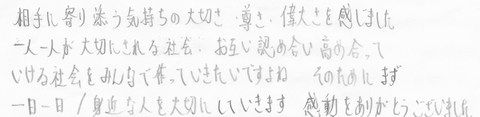 相手に寄り添う気持ちの大切さ 尊さ 偉大さを感じました
一人一人が大切にされる社会 お互い認め合い 高め合って
いける社会をみんなで作っていきたいですよね そのために まず
一日一日 / 身近な人を大切にしていきます 感動をありがとうございました